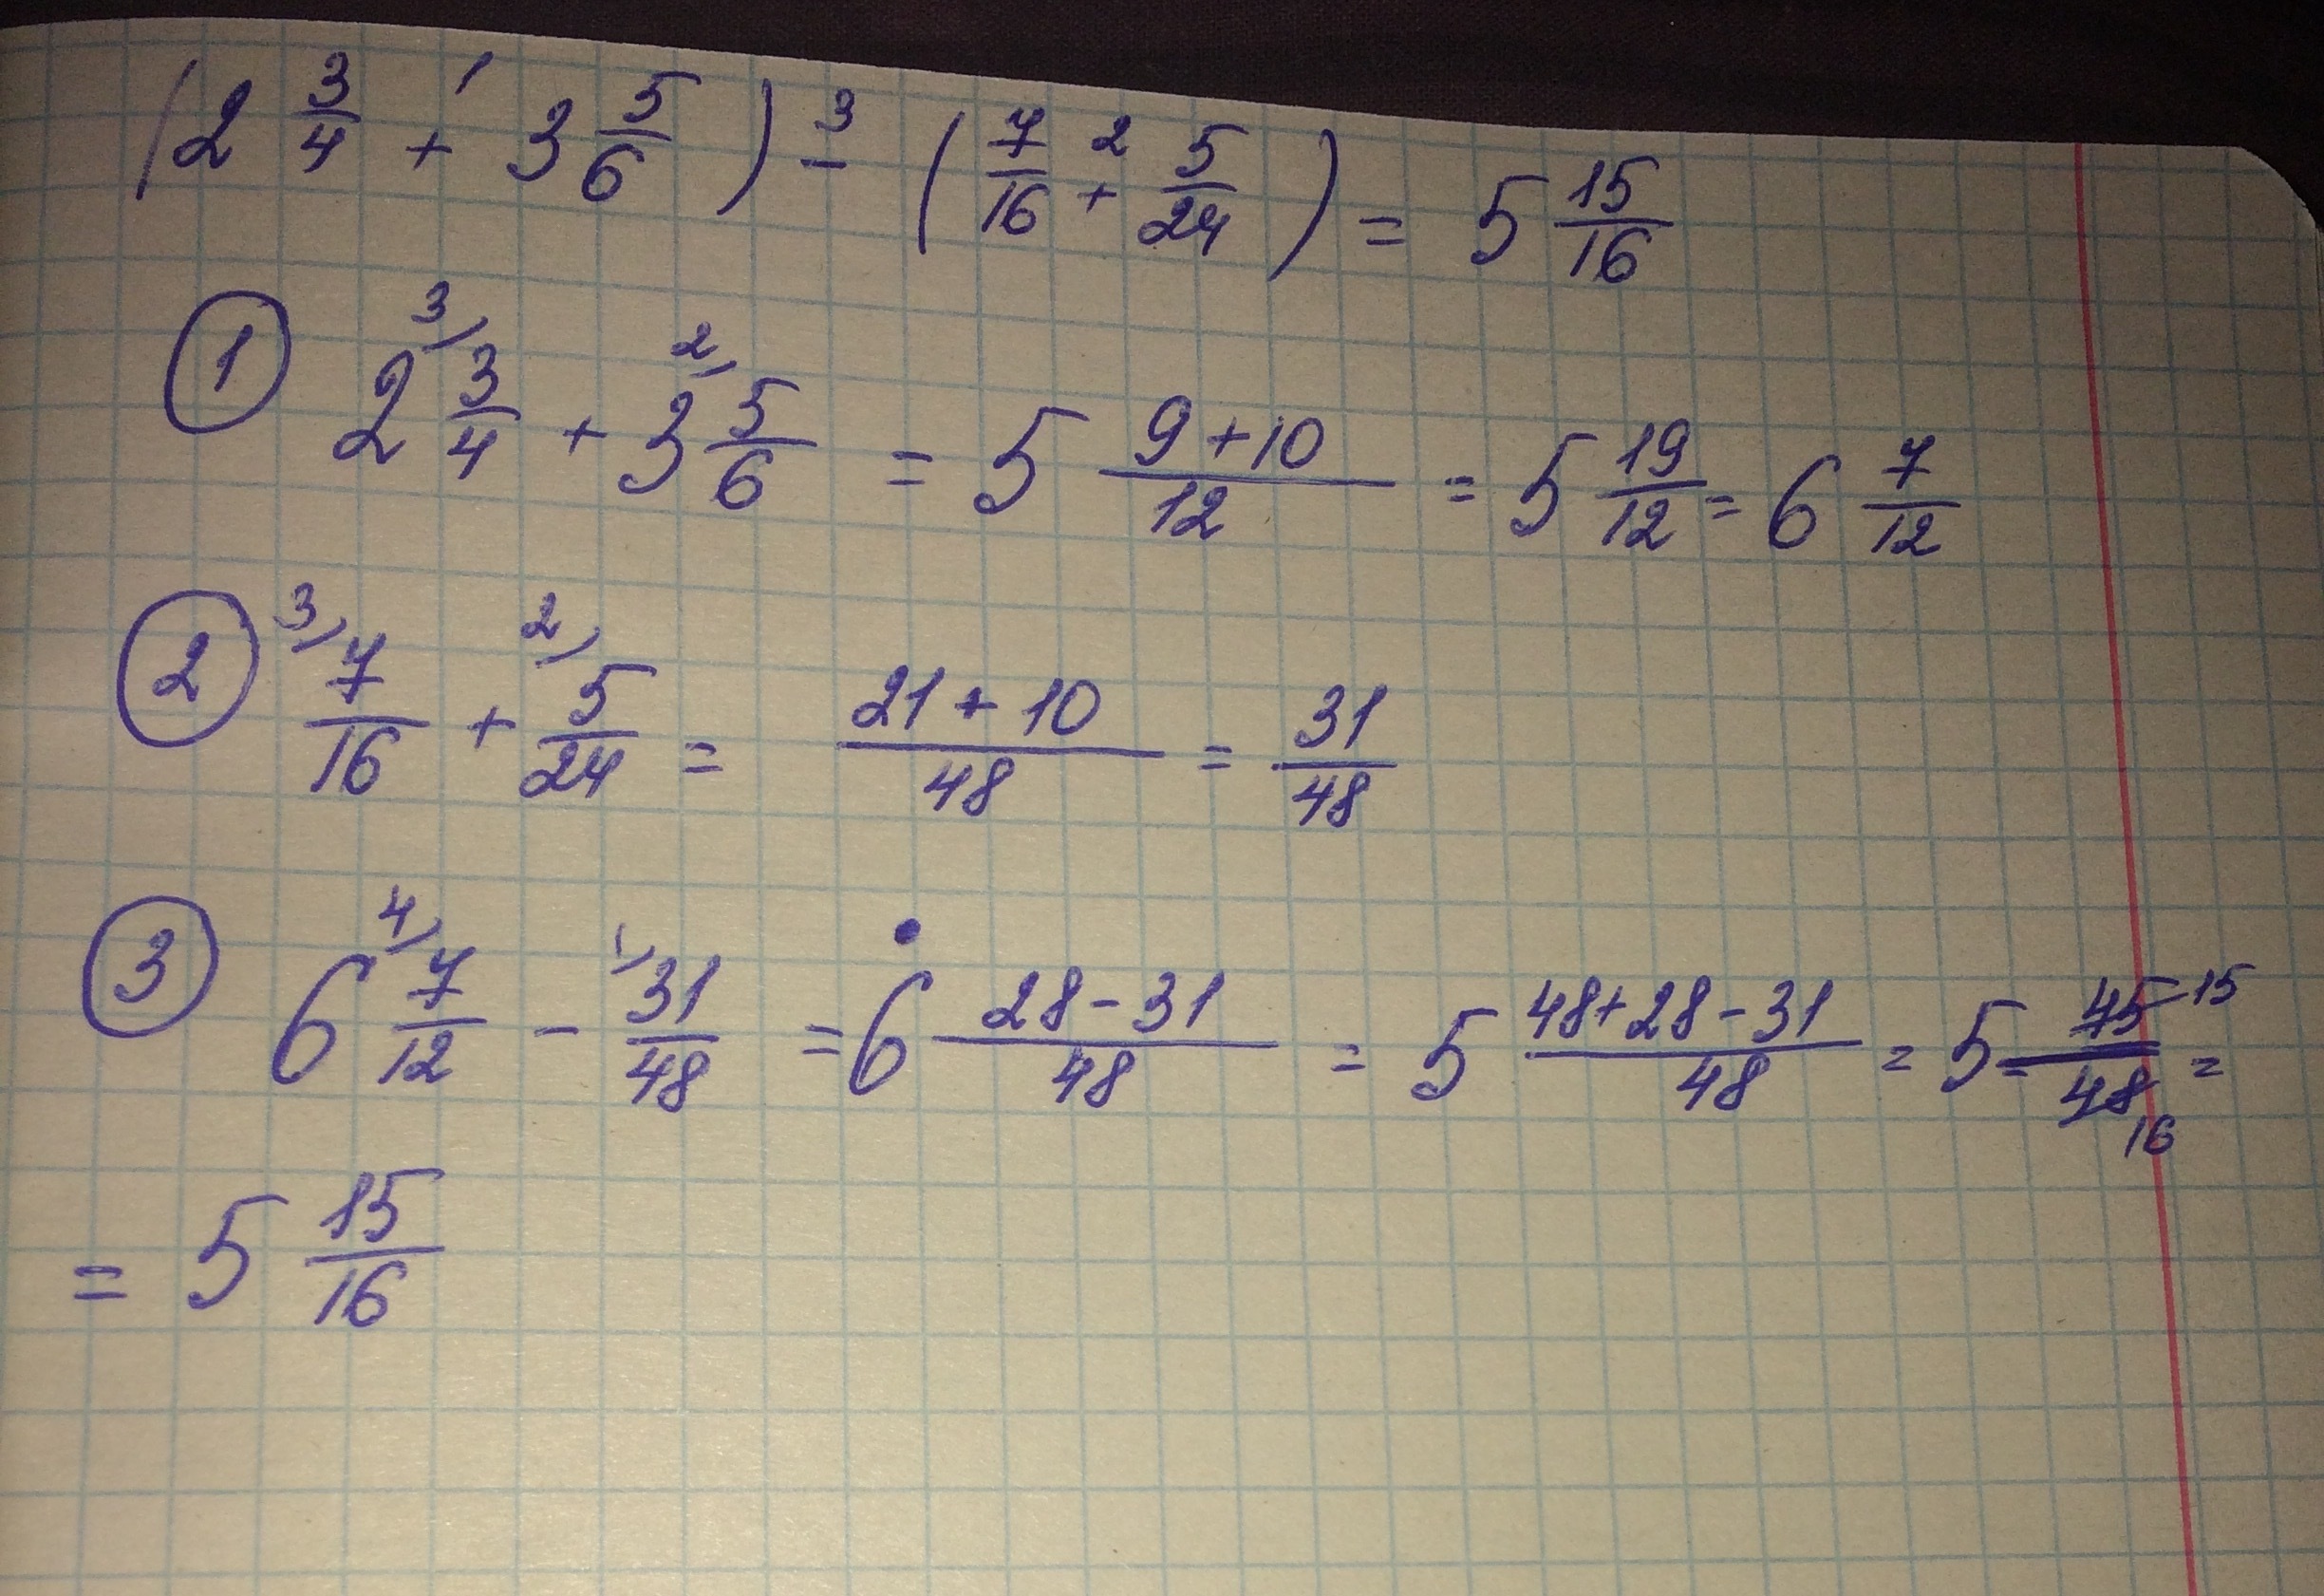 (2 3/4 + 3 5/6) - (7/16 + 5/24) = 5 15/16
① 2 3/4 + 3 5/6 = 5 (9+10)/12 = 5 19/12 = 6 7/12
② 7/16 + 5/24 = (21+10)/48 = 31/48
③ 6 7/12 - 31/48 = 6 (28-31)/48 = 5 (48+28-31)/48 = 5 45/48 =
= 5 15/16